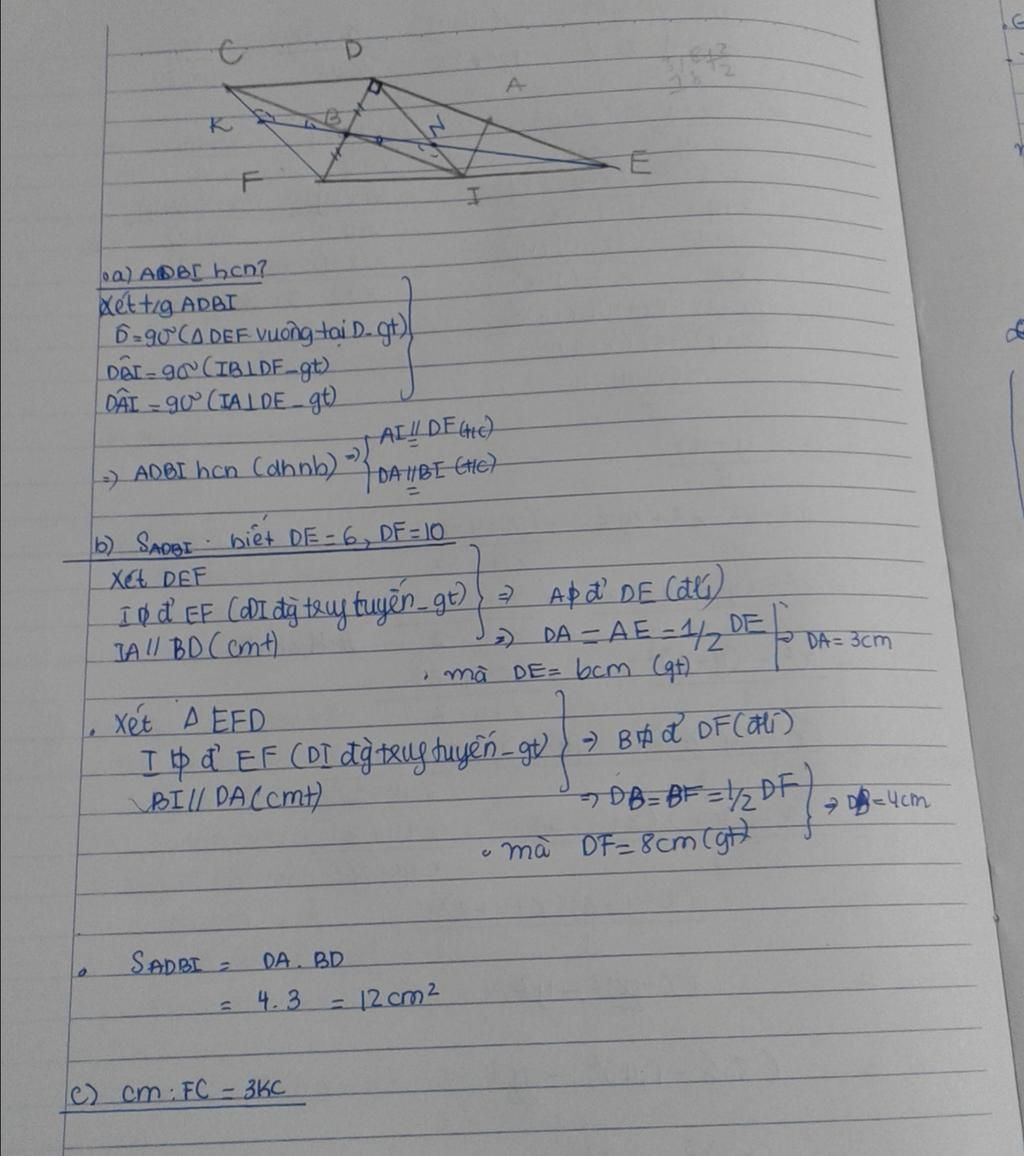 C D A
K B N
F I E
a) ADBI hcn?
Xét t/g ADBI
D̂=90° (ΔDEF vuông tại D_gt)
DB̂I = 90° (IB⊥DF_gt)
DÂI = 90° (IA⊥DE_gt)
=> ADBI hcn (dhnb) => AI // DF (t/c)
DA // BI (t/c)
b) SADBI. biết DE = 6, DF = 10
Xét DEF
I tđ' EF (DI đg trug tuyến_gt) => A tđ' DE (đlí)
IA // BD (cmt) => DA = AE = 1/2 DE => DA = 3cm
. mà DE = 6cm (gt)
. Xét Δ EFD
I tđ' EF (DI đg trug tuyến_gt) => B tđ' DF (đlí)
BI // DA (cmt) => DB = BF = 1/2 DF => DB = 4cm
. mà DF = 8cm (gt)
. SADBI = DA . BD
= 4.3 = 12cm²
c) cm : FC = 3KC